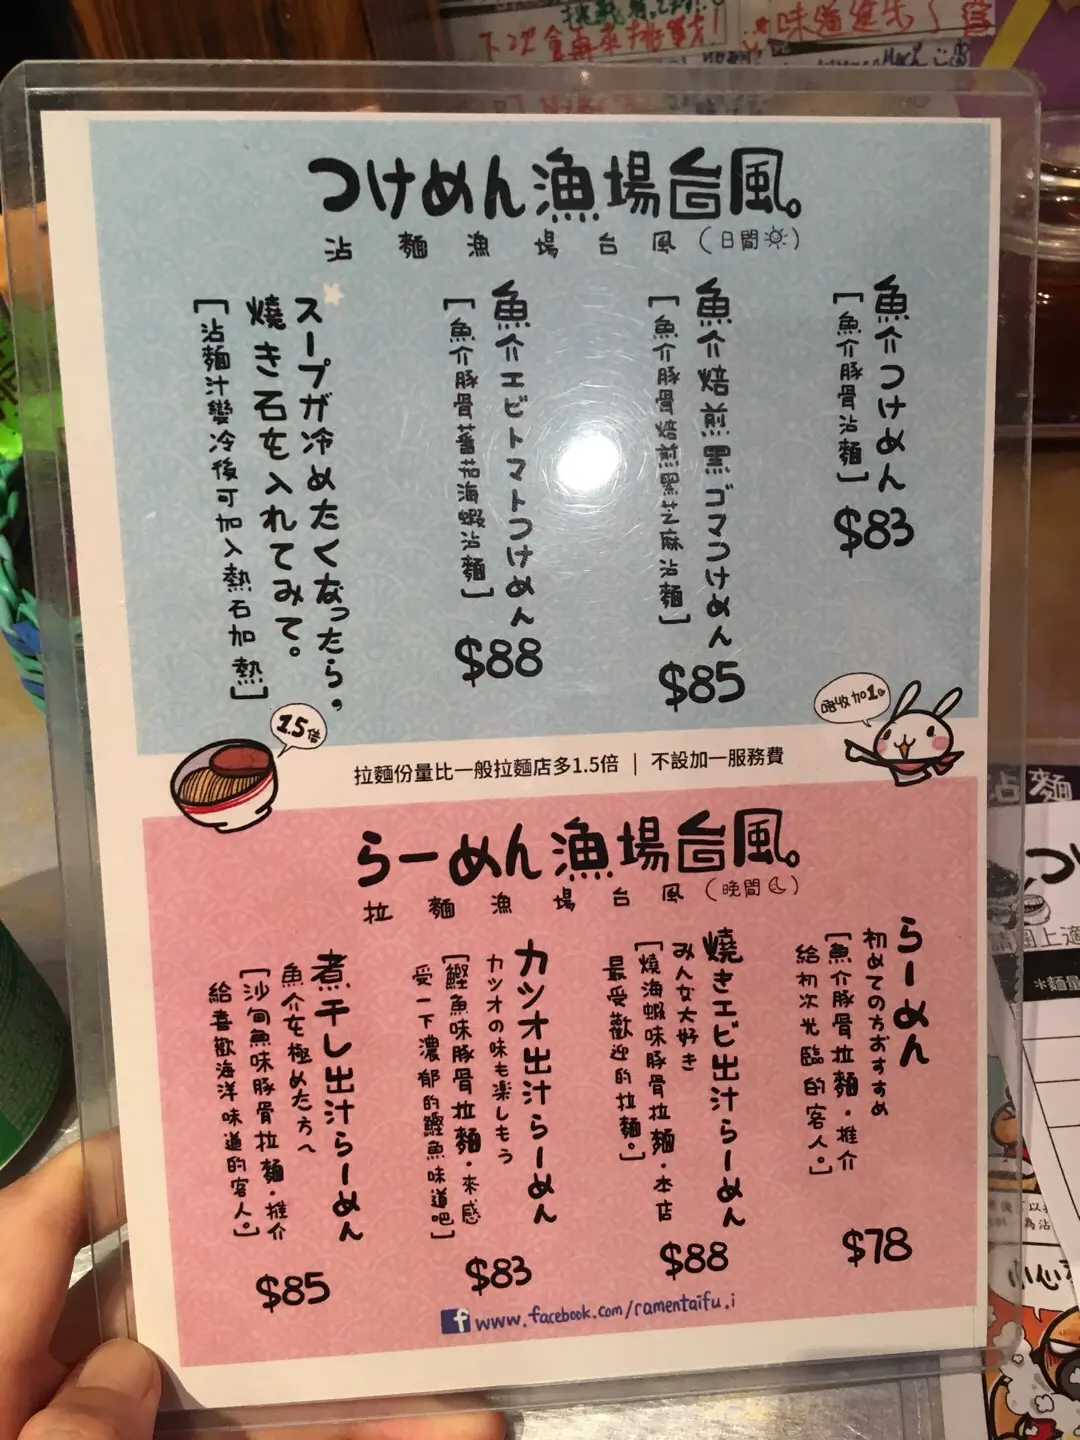 下次會再來挑戰!
味道進步
つけめん漁場台風。
沾麵漁場台風(日間)
魚介つけめん
[魚介豚骨沾麵]
$83
魚介焙煎黑ゴマつけめん
[魚介豚骨焙煎黑芝麻沾麵]
$85
魚介エビトマトつけめん
[魚介豚骨蕃茄海蝦沾麵]
$88
スープが冷めたくなったら。
燒き石を入れてみて。
[沾麵汁變冷後可加入熱石加熱]
1.5倍
拉麵份量比一般拉麵店多1.5倍 | 不設加一服務費
唔收加1
らーめん漁場台風。
拉麵漁場台風(晚間)
らーめん
初めての方おすすめ
[魚介豚骨拉麵・推介
給初次光臨的客人。]
$78
燒きエビ出汁らーめん
みんな大好き
[燒海蝦味豚骨拉麵・本店
最受歡迎的拉麵。]
$88
カツオ出汁らーめん
カツオの味も楽しもう
[鰹魚味豚骨拉麵・來感
受一下濃郁的鰹魚味道吧]
$83
煮干し出汁らーめん
魚介を極めた方へ
[沙甸魚味豚骨拉麵・推介
給喜歡海洋味道的客人。]
$85
f www.facebook.com/ramentaifu.i
沾麵